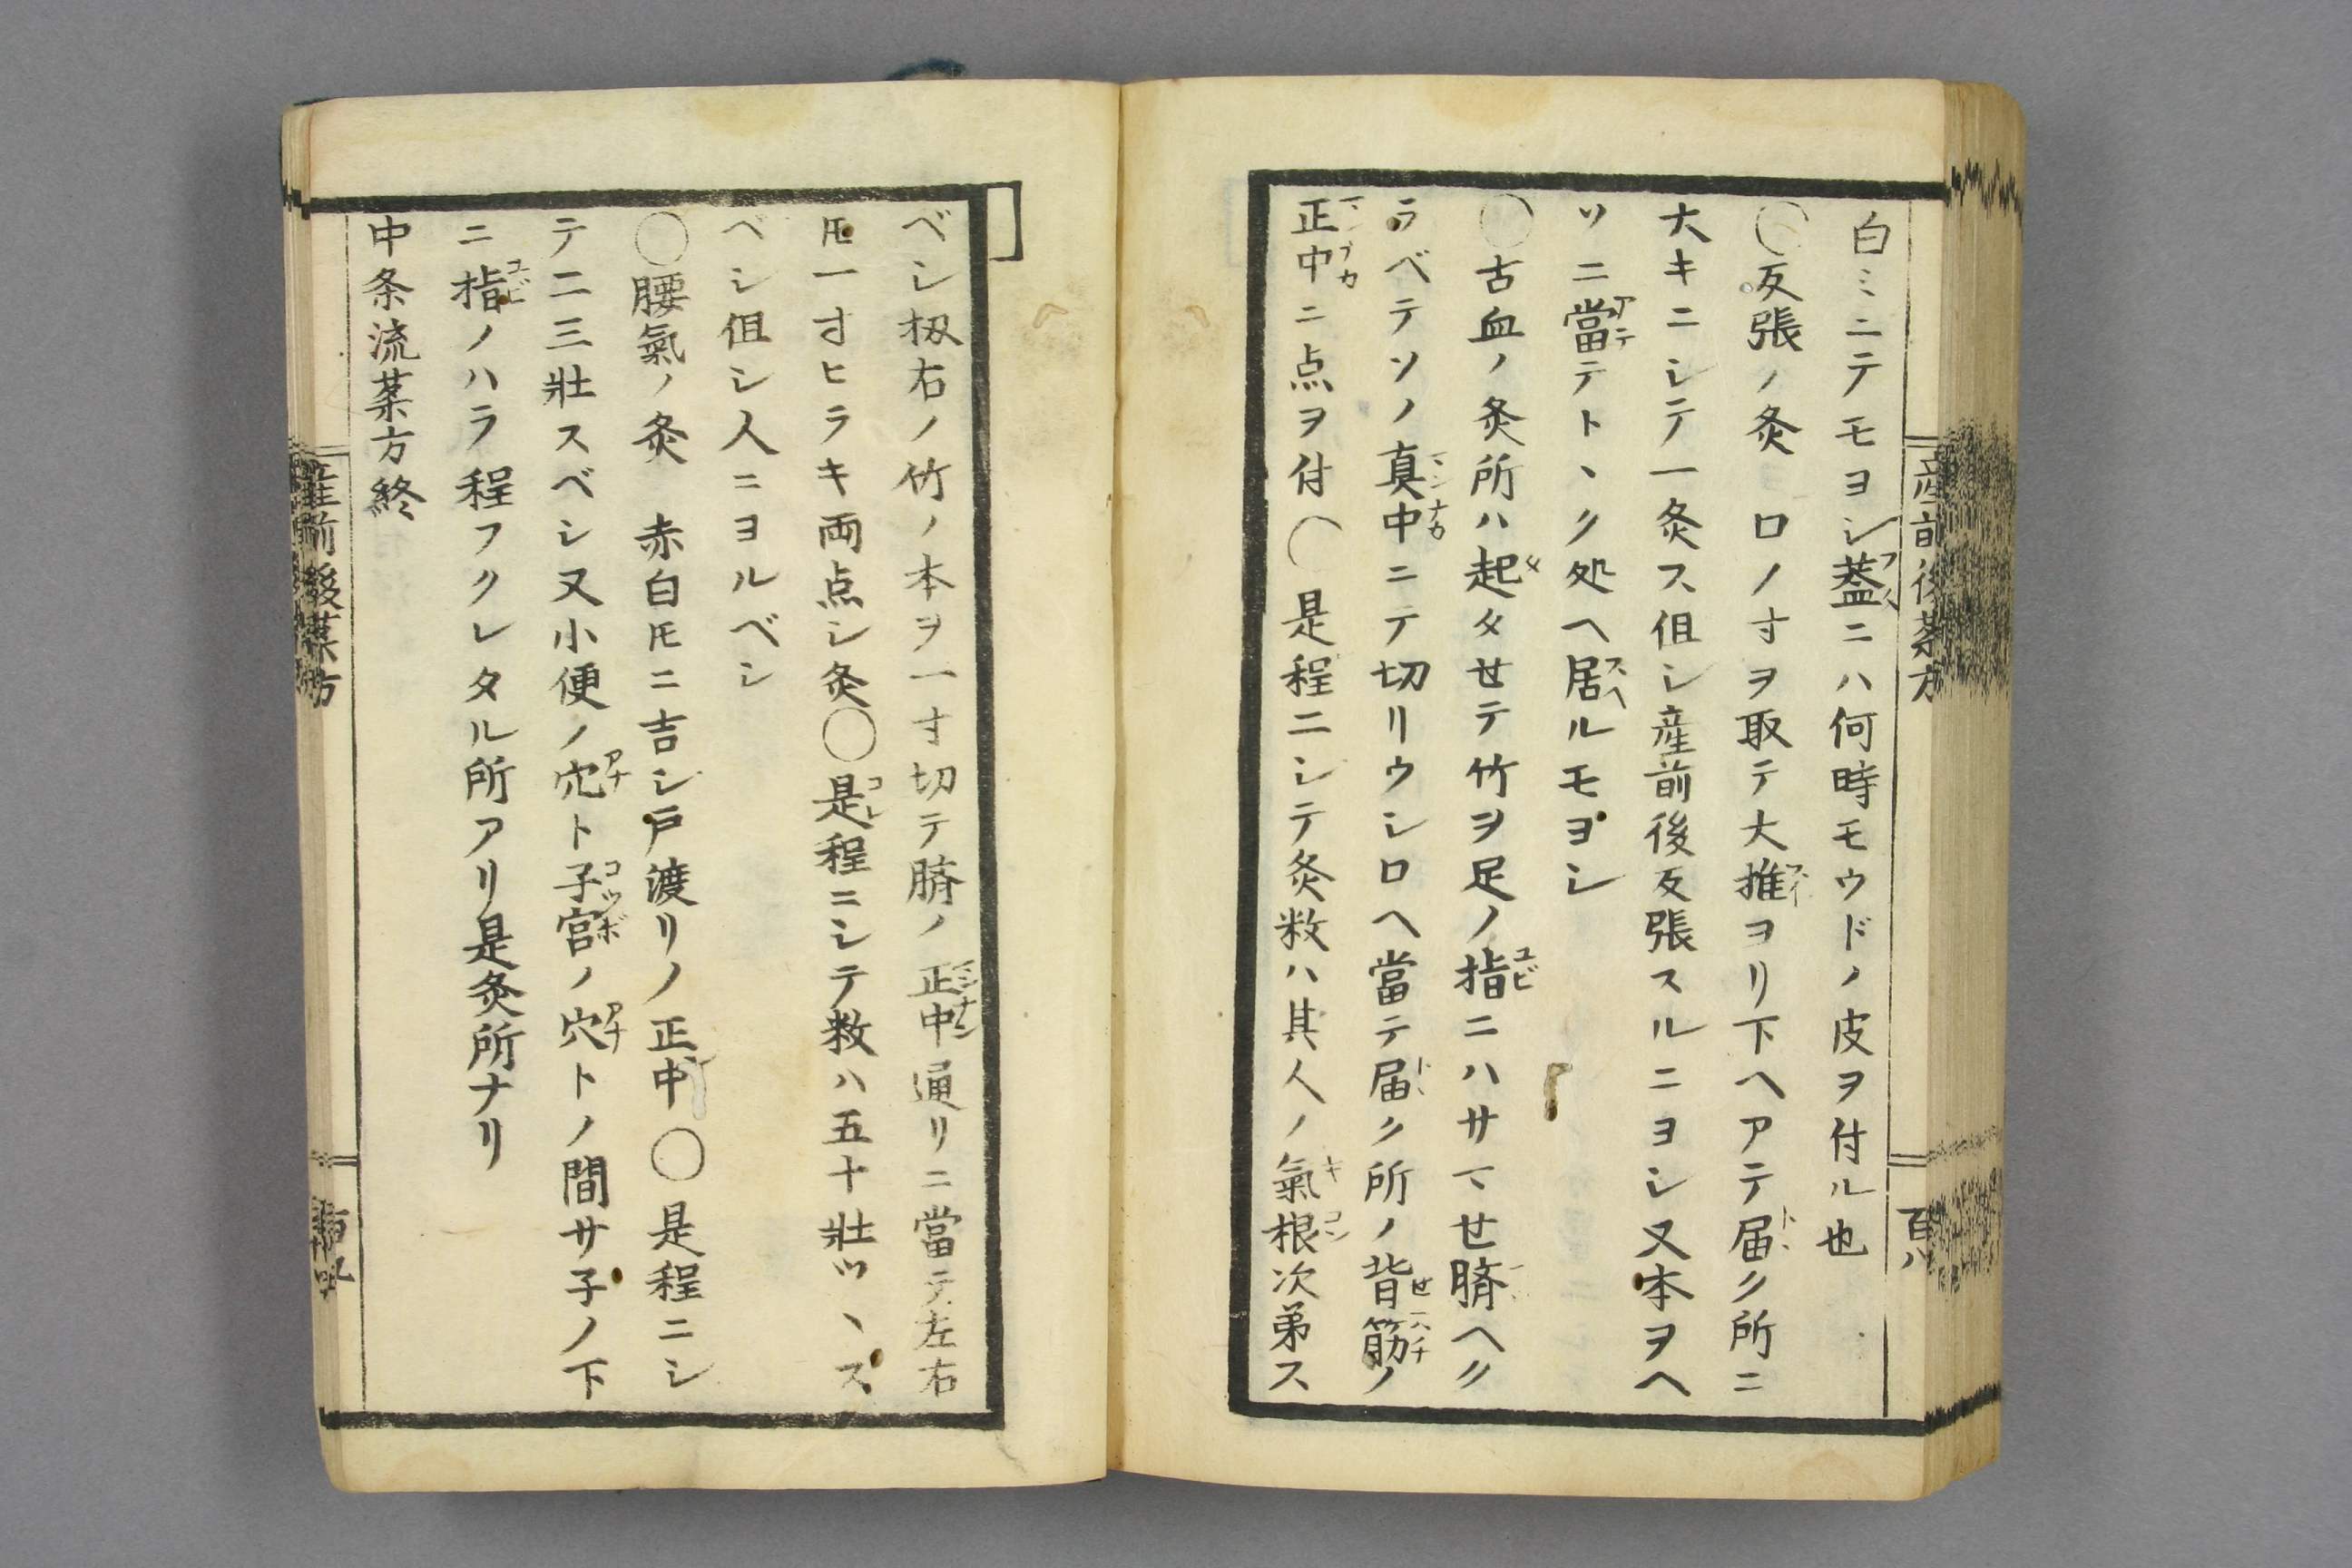 白ミニテモヨシ蓋ニハ何時モウドノ皮ヲ付ル也
〇反張ノ灸 口ノ寸ヲ取テ大推ヨリ下ヘアテ届ク所ニ
大キニシテ一灸ス但シ産前後反張スルニヨシ又本ヲヘ
ソニ當テトヽク処ヘ居ルモヨシ
〇古血ノ灸所ハ起タセテ竹ヲ足ノ指ニハサマセ臍ヘク
ラベテソノ真中ニテ切リウシロヘ當テ届ク所ノ背筋ノ
正中ニ点ヲ付〇是程ニシテ灸数ハ其人ノ氣根次弟ス
産前後薬方
百八
ベシ扨右ノ竹ノ本ヲ一寸切テ臍ノ正中通リニ當テ左右
𪜈一寸ヒラキ両点シ灸〇是程ニシテ数ハ五十壯ツヽス
ベシ但シ人ニヨルベシ
〇腰氣ノ灸 赤白𪜈ニ吉シ戸渡リノ正中〇是程ニシ
テ二三壯スベシ又小便ノ穴ト子宮ノ穴トノ間サ子ノ下
ニ指ノハラ程フクレタル所アリ是灸所ナリ
中条流薬方終
産前後薬方
百九